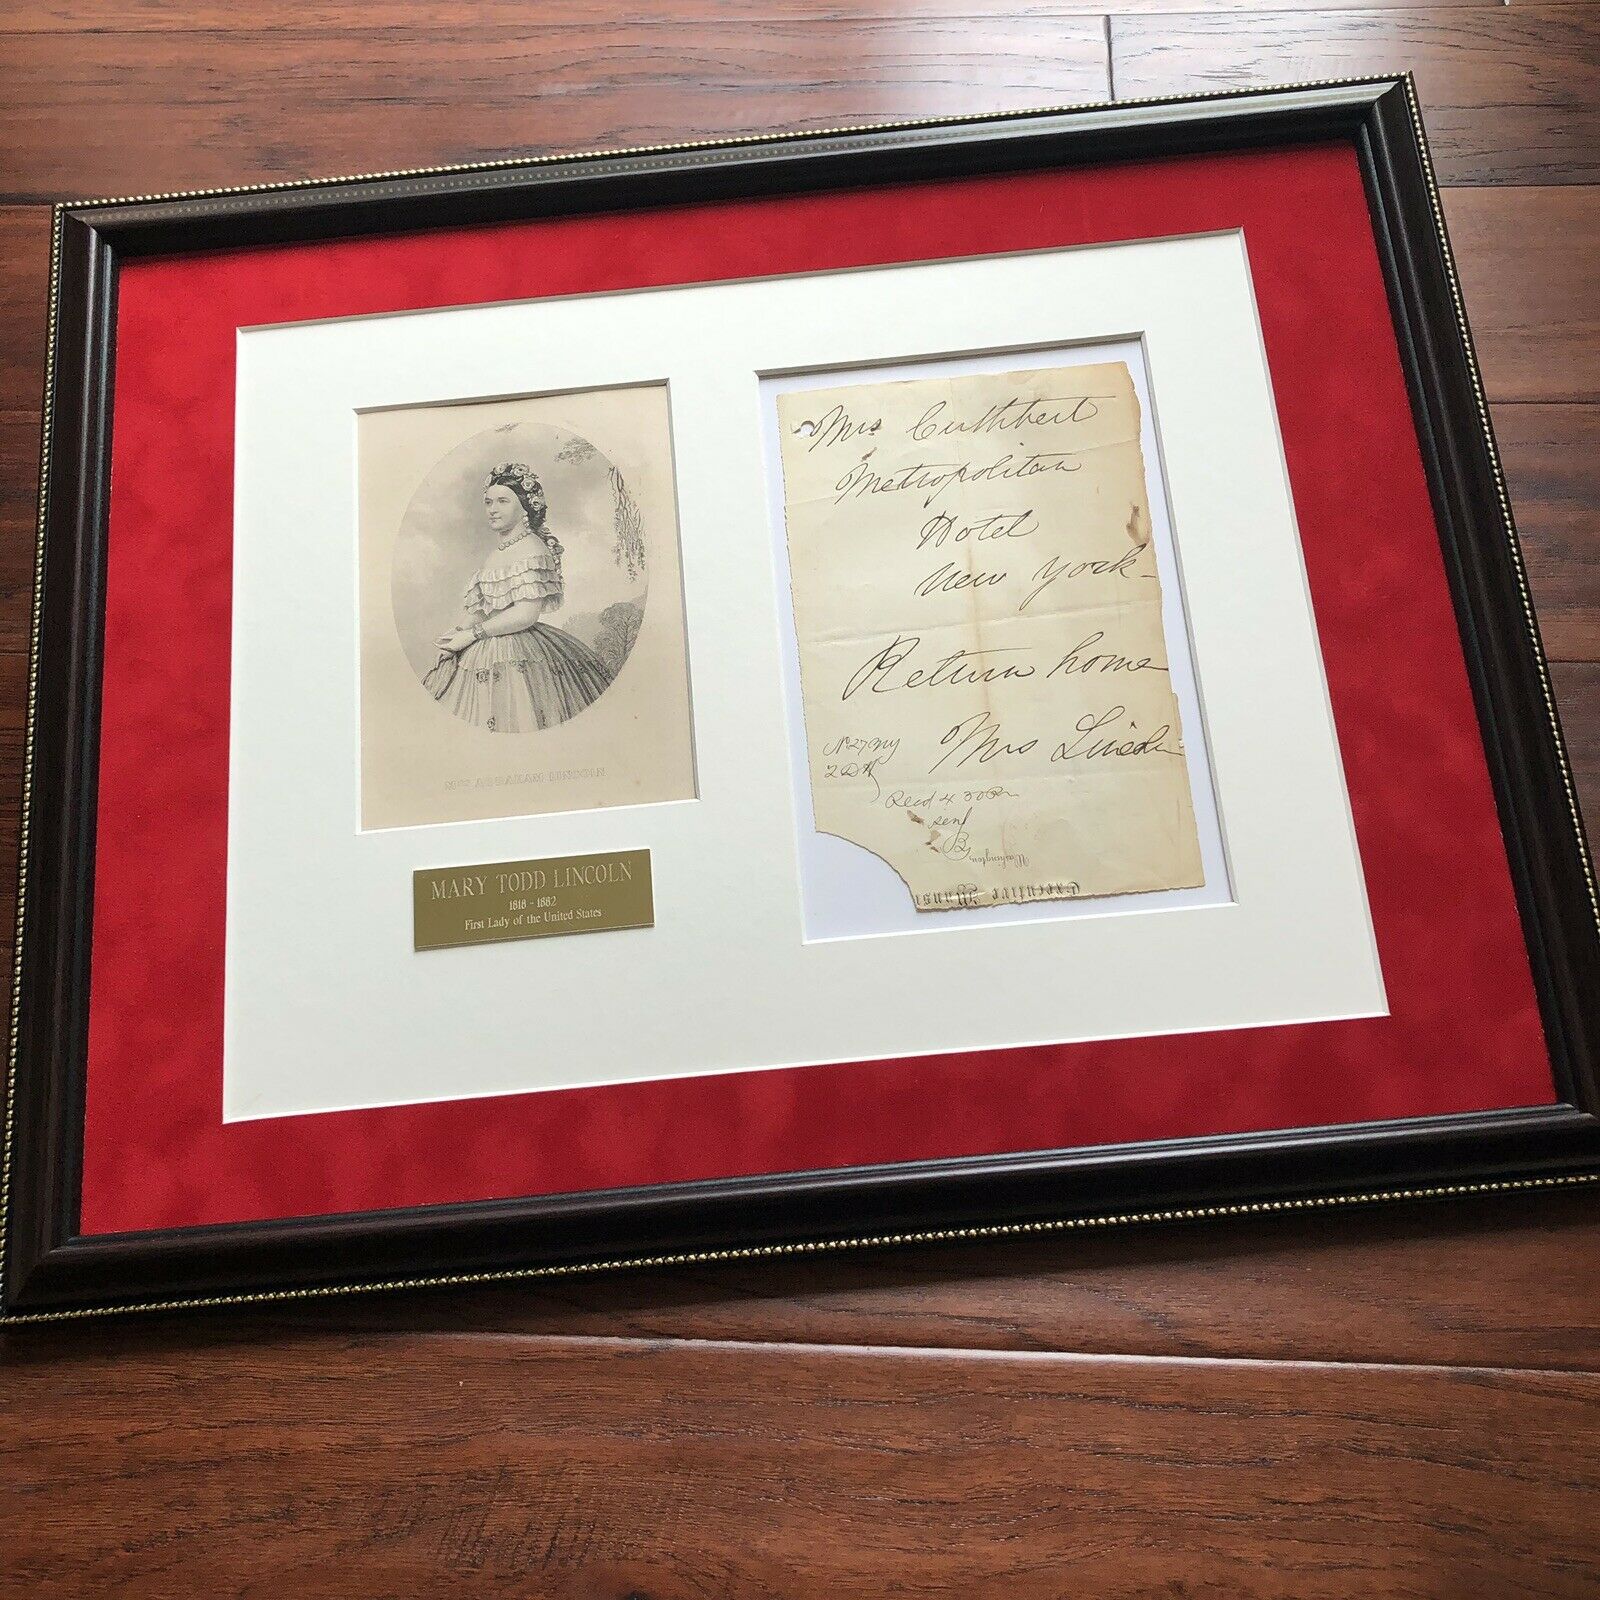 Mrs. ABRAHAM LINCOLN
MARY TODD LINCOLN
1818 - 1882
First Lady of the United States
Mrs Cuthbert
Metropolitan
Hotel
New York-
Return home
Mrs Lincoln
No 27 Ny
2 D H
Recd 4 30 Pm
sent
By
Washington,
Executive Mansi